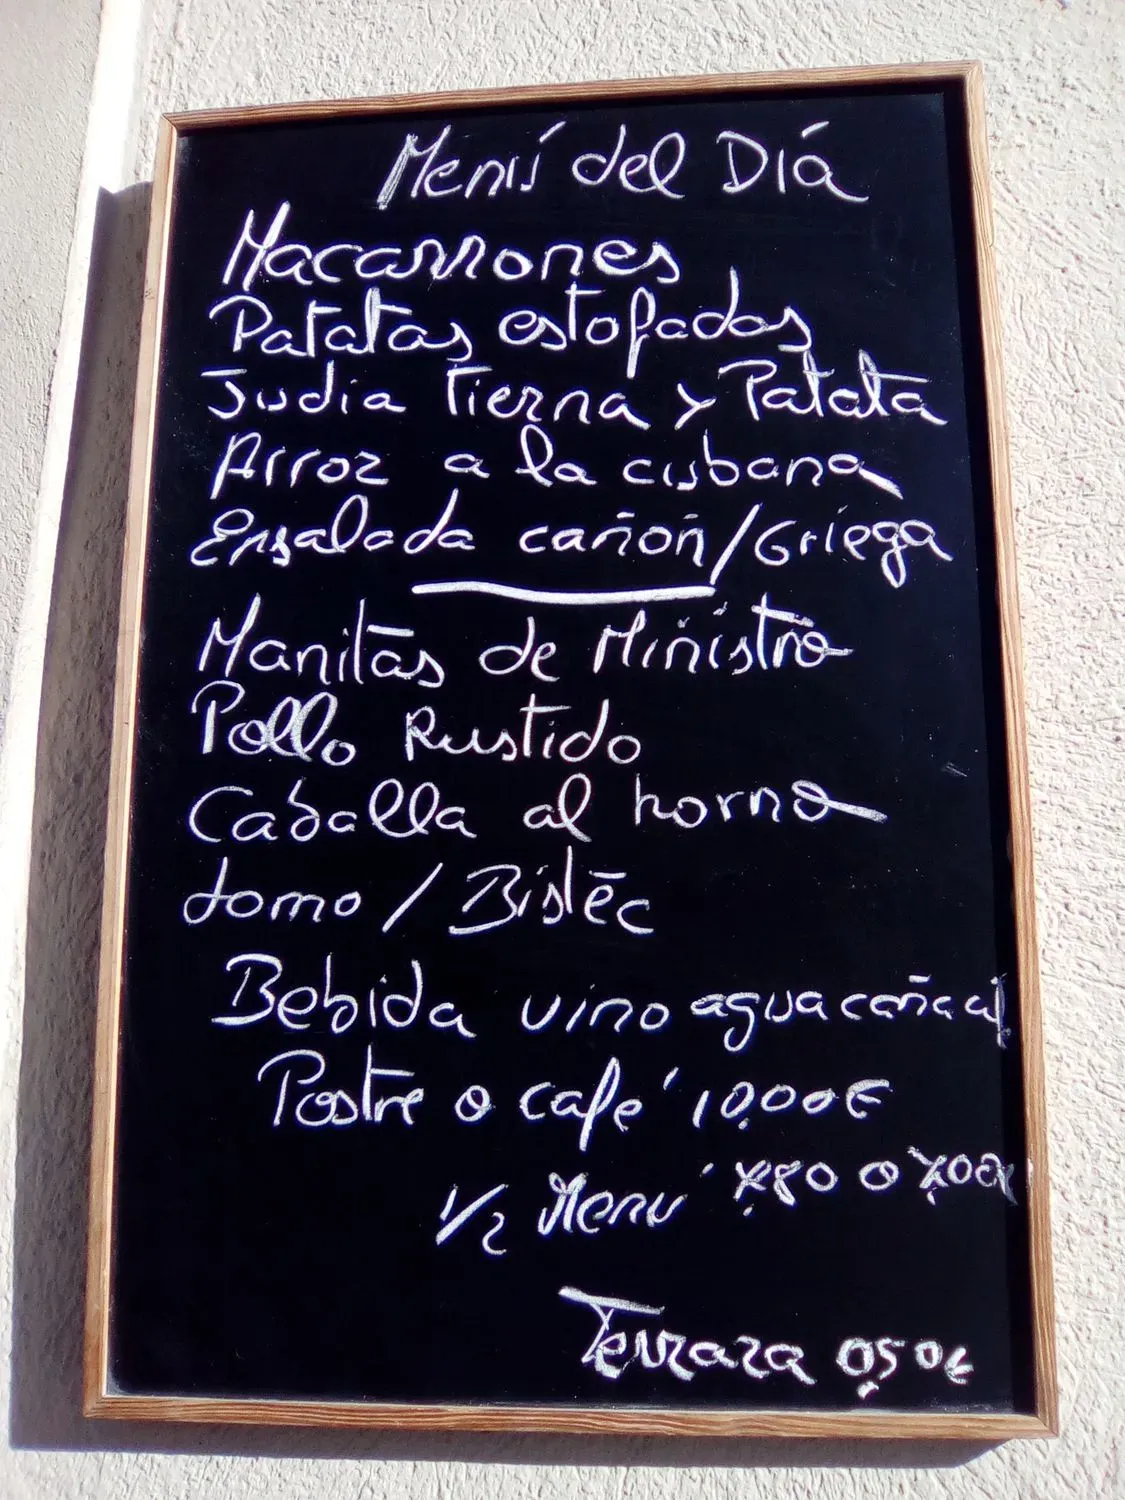 Menú del Diá
Macarrones
Patatas estofadas
Judia Tierna y Patata
Arroz a la cubana
Ensalada cañoñ/Griega
Manitas de Ministro
Pollo Rustido
Caballa al horno
Lomo / Bistec
Bebida vino agua caña
Postre o café 10,00€
1/2 Menu 7,80 o 7,00€
Terraza 0,50€